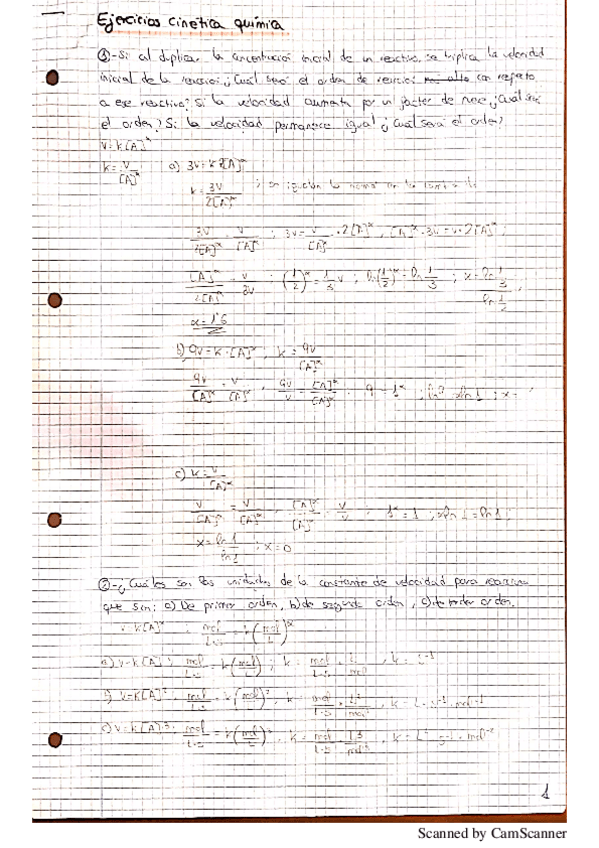 1
Ejercicios cinética química
①-Si al duplicar la concentración inicial de un reactivo, se triplica la velocidad
inicial de la reacción ¿Cuál será el orden de reacción con respecto
a ese reactivo? Si la velocidad aumenta por un factor de nueve ¿Cuál será
el orden? Si la velocidad permanece igual ¿Cuál será el orden?
v=k[A]^x
k=v/[A]^x a) 3v=k2[A]^x
k=3v/2[A]^x ; se igualan
3v/2[A]^x = v/[A]^x ; 3v=v/[A]^x · 2[A]^x ; [A]^x · 3v=v·2[A]^x ;
[A]^x/2[A]^x = v/3v ; (1/2)^x = 1/3 v ; ln(1/2)^x = ln 1/3 ; x = ln 1/3 / ln 1/2
x=1'6
b) 9v=k·[A]^x , k=9v/[A]^x
9v/[A]^x = v/[A]^x ; 9v/v = [A]^x/[A]^x ; 9=1^x
c) k=v/[A]^x
v/[A]^x = v/[A]^x , [A]^x/[A]^x = v/v ; 1^x=1 ; xln1=ln1 ;
x=ln1/ln1 ; x=0
②-¿Cuáles son las unidades de la constante de velocidad para reacciones
que son: a) De primer orden, b) de segundo orden, c) de tercer orden.
v=k[A]^x ; mol/L·s = k(mol/L)^x
a) v=k[A] ; mol/L·s = k(mol/L) ; k = mol/L·s · L/mol , k= s^-1
b) v=k[A]^2 ; mol/L·s = k(mol/L)^2 , k = mol/L·s · L^2/mol^2 , k = L·s^-1·mol^-1
c) v=k[A]^3 ; mol/L·s = k(mol/L)^3 , k = mol/L·s · L^3/mol^3 , k = L^2·s^-1·mol^-2
1
Scanned by CamScanner